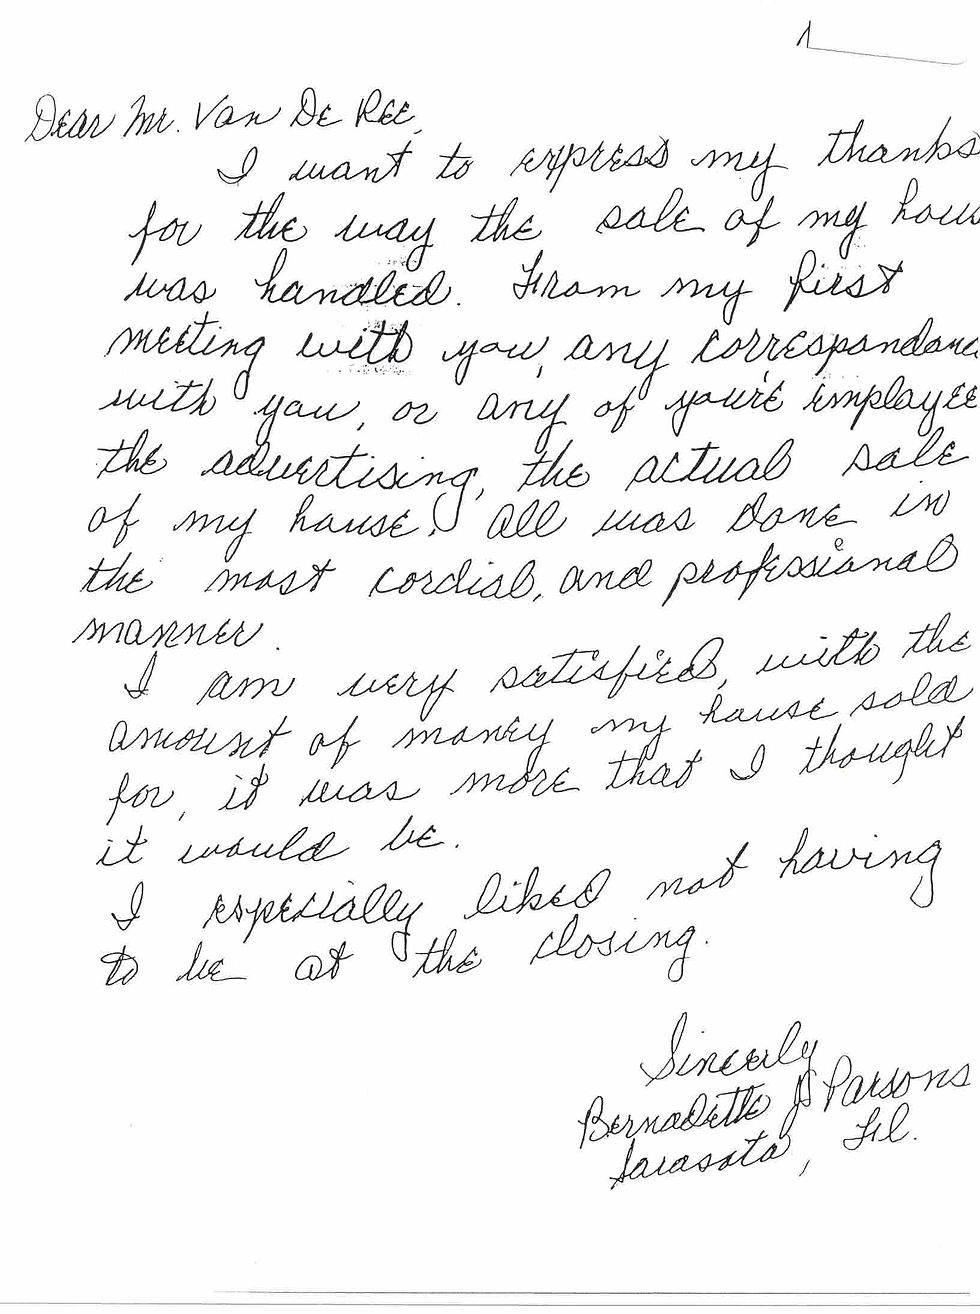 Dear Mr. Van De Ree,
I want to express my thanks
for the way the sale of my hous
was handled. From my first
meeting with you, any correspondanc
with you, or any of you're employee
the advertising, the actual sale
of my house. All was done in
the most cordial, and professional
manner.
I am very satisfied, with the
amount of money my house sold
for, it was more that I thought
it would be.
I especially liked not having
to be at the closing.
Sincerly
Bernadette J Parsons
Sarasota, Fl.